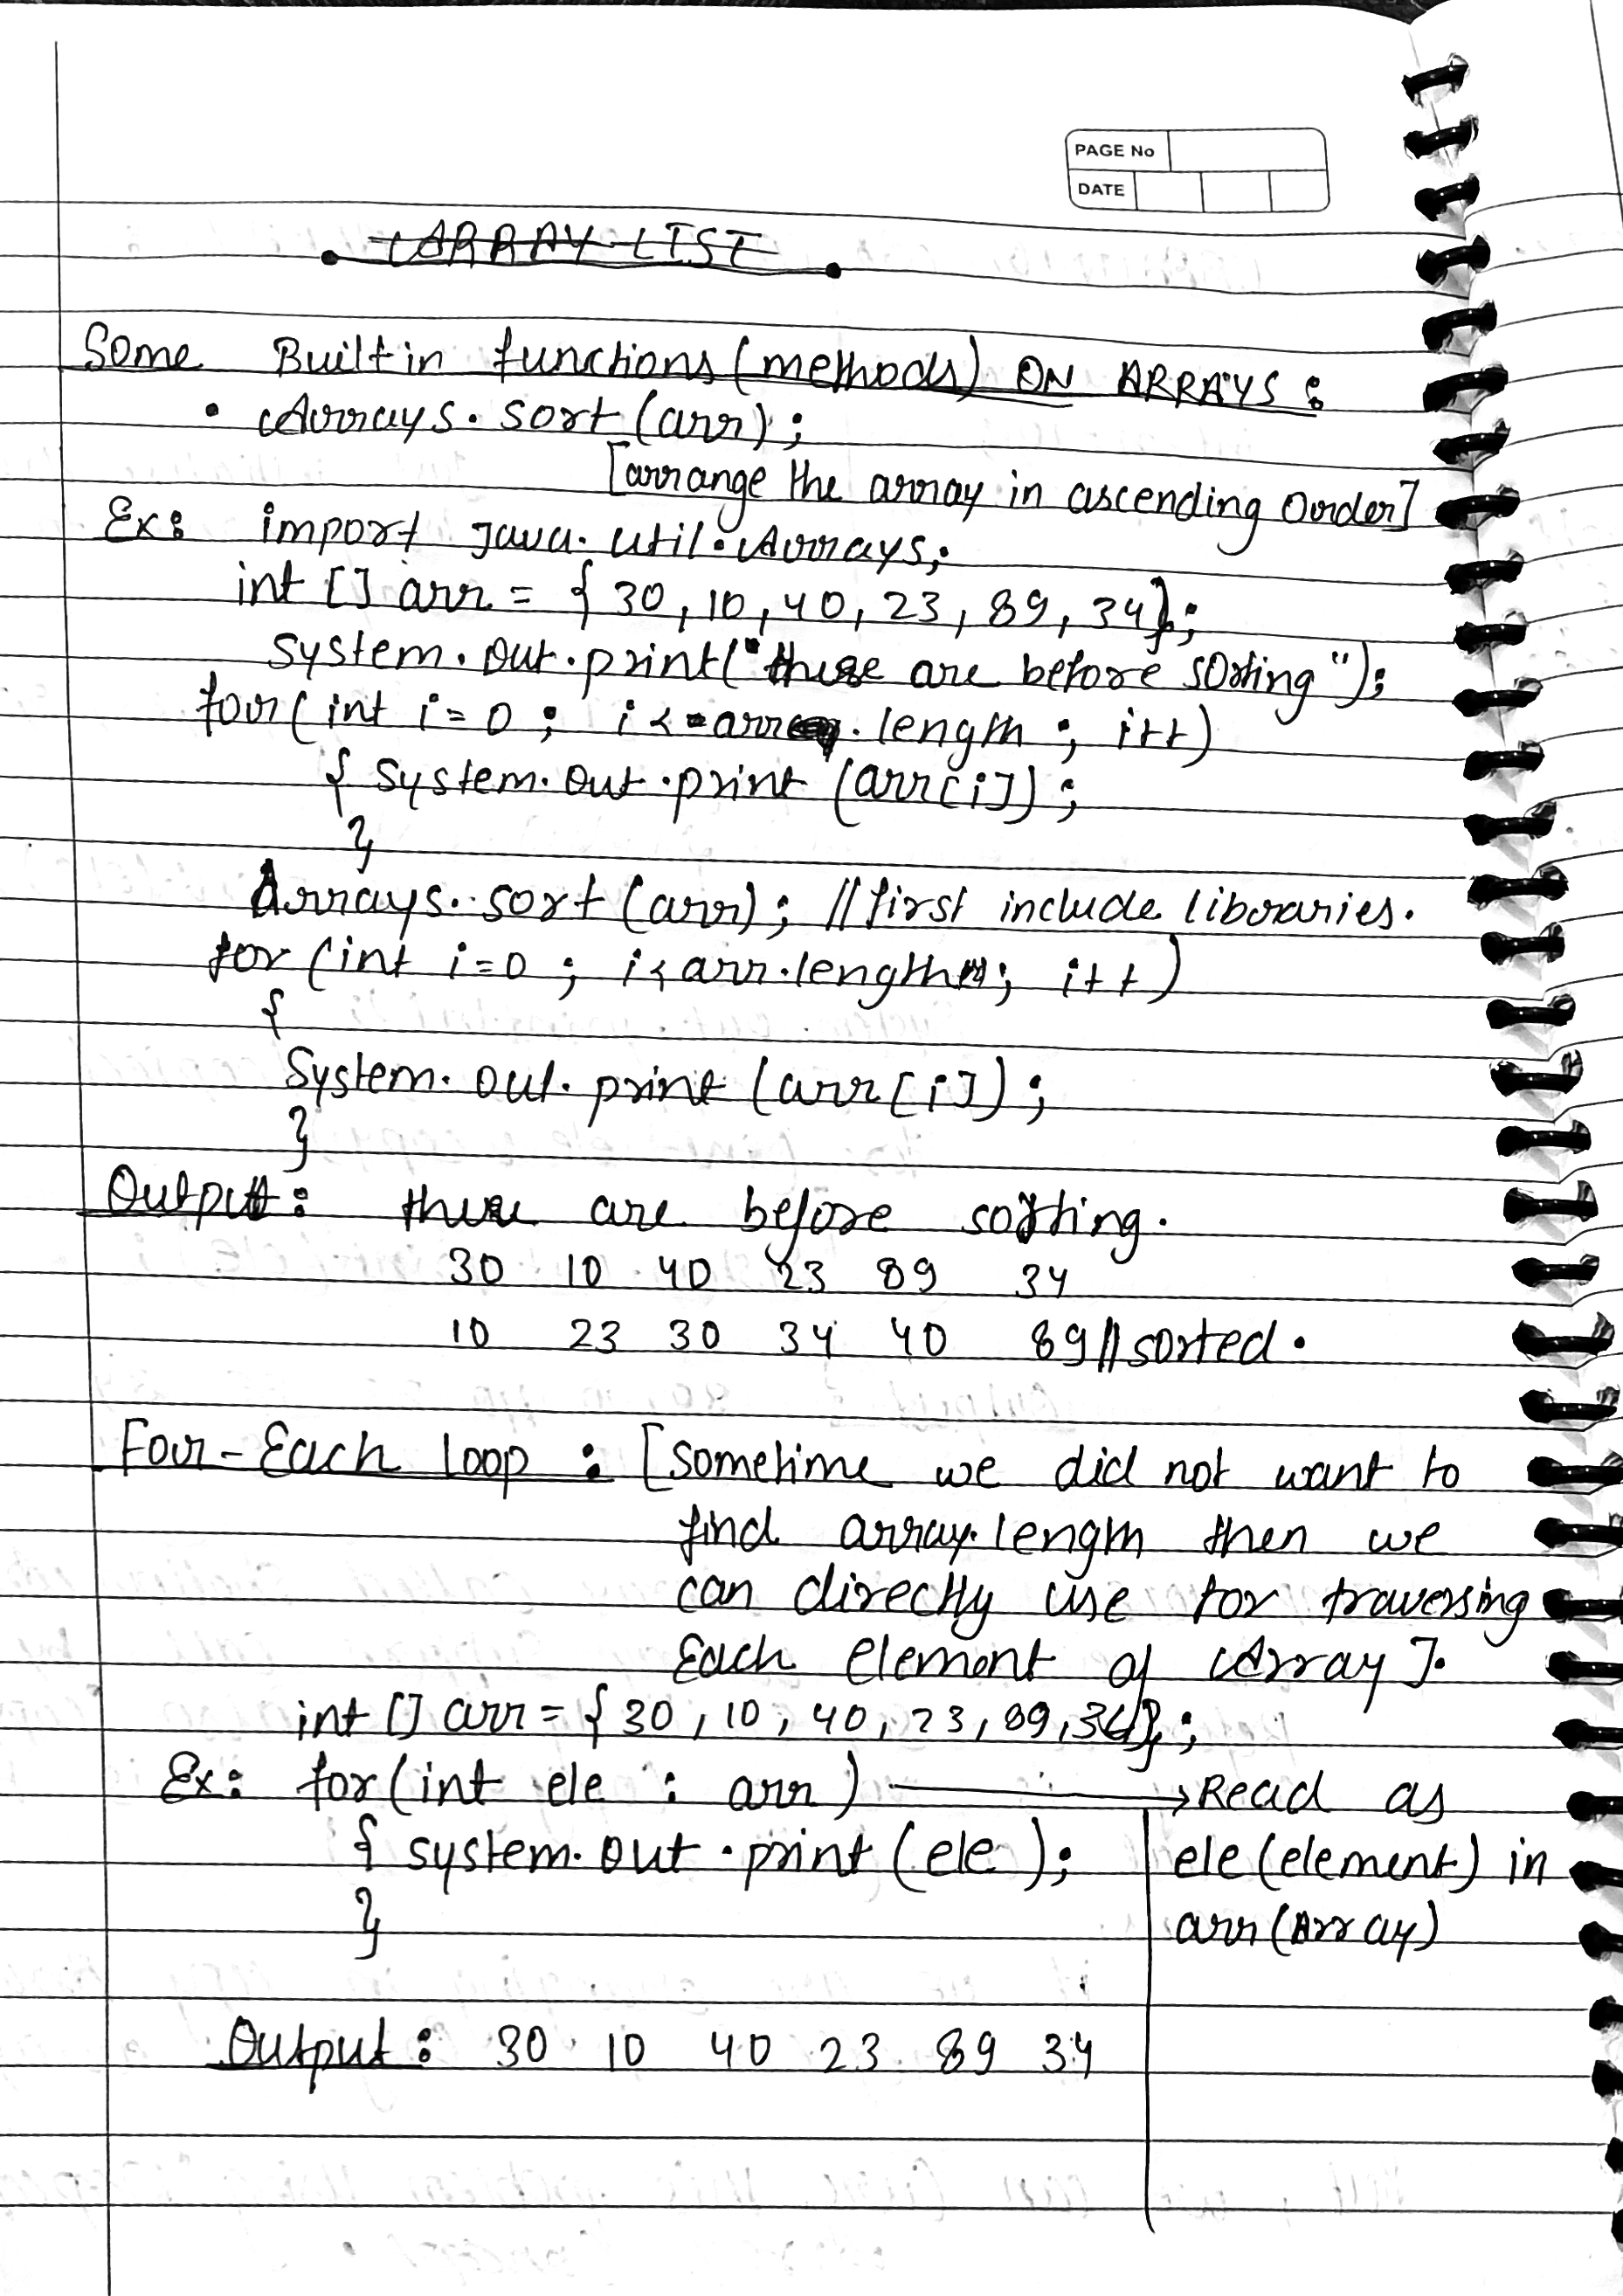 PAGE No
DATE
ARRAY LIST
Some Built in functions (methods) ON ARRAYS :
• Arrays. sort (arr) ;
[arrange the array in ascending Order]
Ex: import Java. util. Arrays;
int [] arr = { 30, 10, 40, 23, 89, 34};
System. out. print("these are before sorting");
for( int i = 0 ; i < arr. length ; i++)
{ System. out . print (arr[i]) ;
}
Arrays. sort (arr) ; // first include libraries.
for (int i=0 ; i< arr.length ; i++)
{
System. out. print (arr[i]) ;
}
Output : these are before sorting.
30 10 40 23 89 34
10 23 30 34 40 89 // sorted .
For - Each loop : [ sometime we did not want to
find array. length then we
can directly use for traversing
Each element of Array ].
int [] arr = { 30, 10, 40, 23, 89, 34};
Ex: for (int ele : arr ) → Read as
{ system. out . print (ele ); ele (element) in
} arr (Array)
Output : 30 10 40 23 89 34